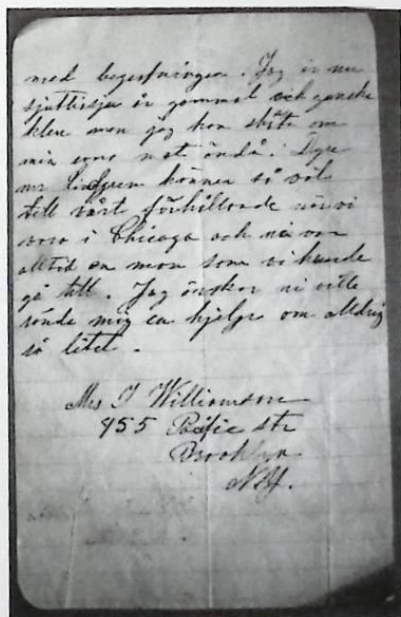 med begrafningen. Jag är nu
sjuttisju år gammal och ganske
klen men jag kan sköta om
min egna mat ändå.
mr Lindgren känner så väl
till vårt förhållande när vi
voro i Chicago och ni var
alltid en man som vi kunde
gå till. Jag önskar ni ville
sända mig en hjelp om aldrig
så litet.
Mrs I Williamson
955 Pacific str
Brooklyn
N.Y.